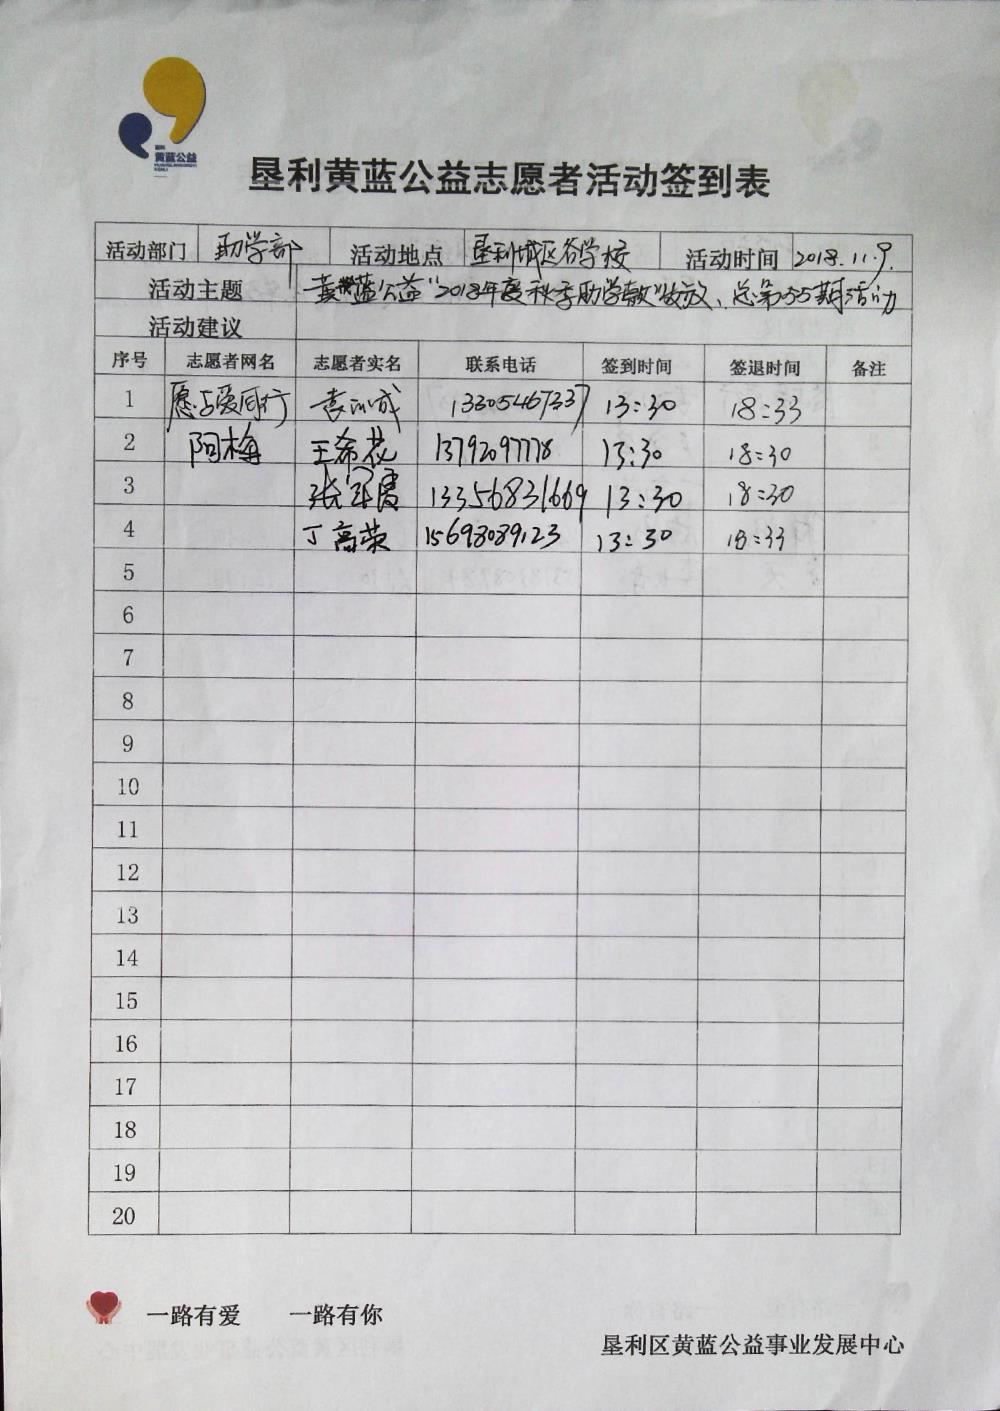 垦利
黄蓝公益
KENLI
垦利黄蓝公益志愿者活动签到表
活动部门 助学部 活动地点 垦利城区各学校 活动时间 2018.11.9.
活动主题 黄蓝公益"2018年度秋季助学款"发放、总第055期活动
活动建议
序号 志愿者网名 志愿者实名 联系电话 签到时间 签退时间 备注
1 愿与爱同行 袁 成 13305467337 13:30 18:33
2 阿梅 王希花 13792097778 13:30 18:30
3 张军霞 13356831669 13:30 18:30
4 丁高荣 15698089123 13:30 18:33
5
6
7
8
9
10
11
12
13
14
15
16
17
18
19
20
一路有爱 一路有你
垦利区黄蓝公益事业发展中心